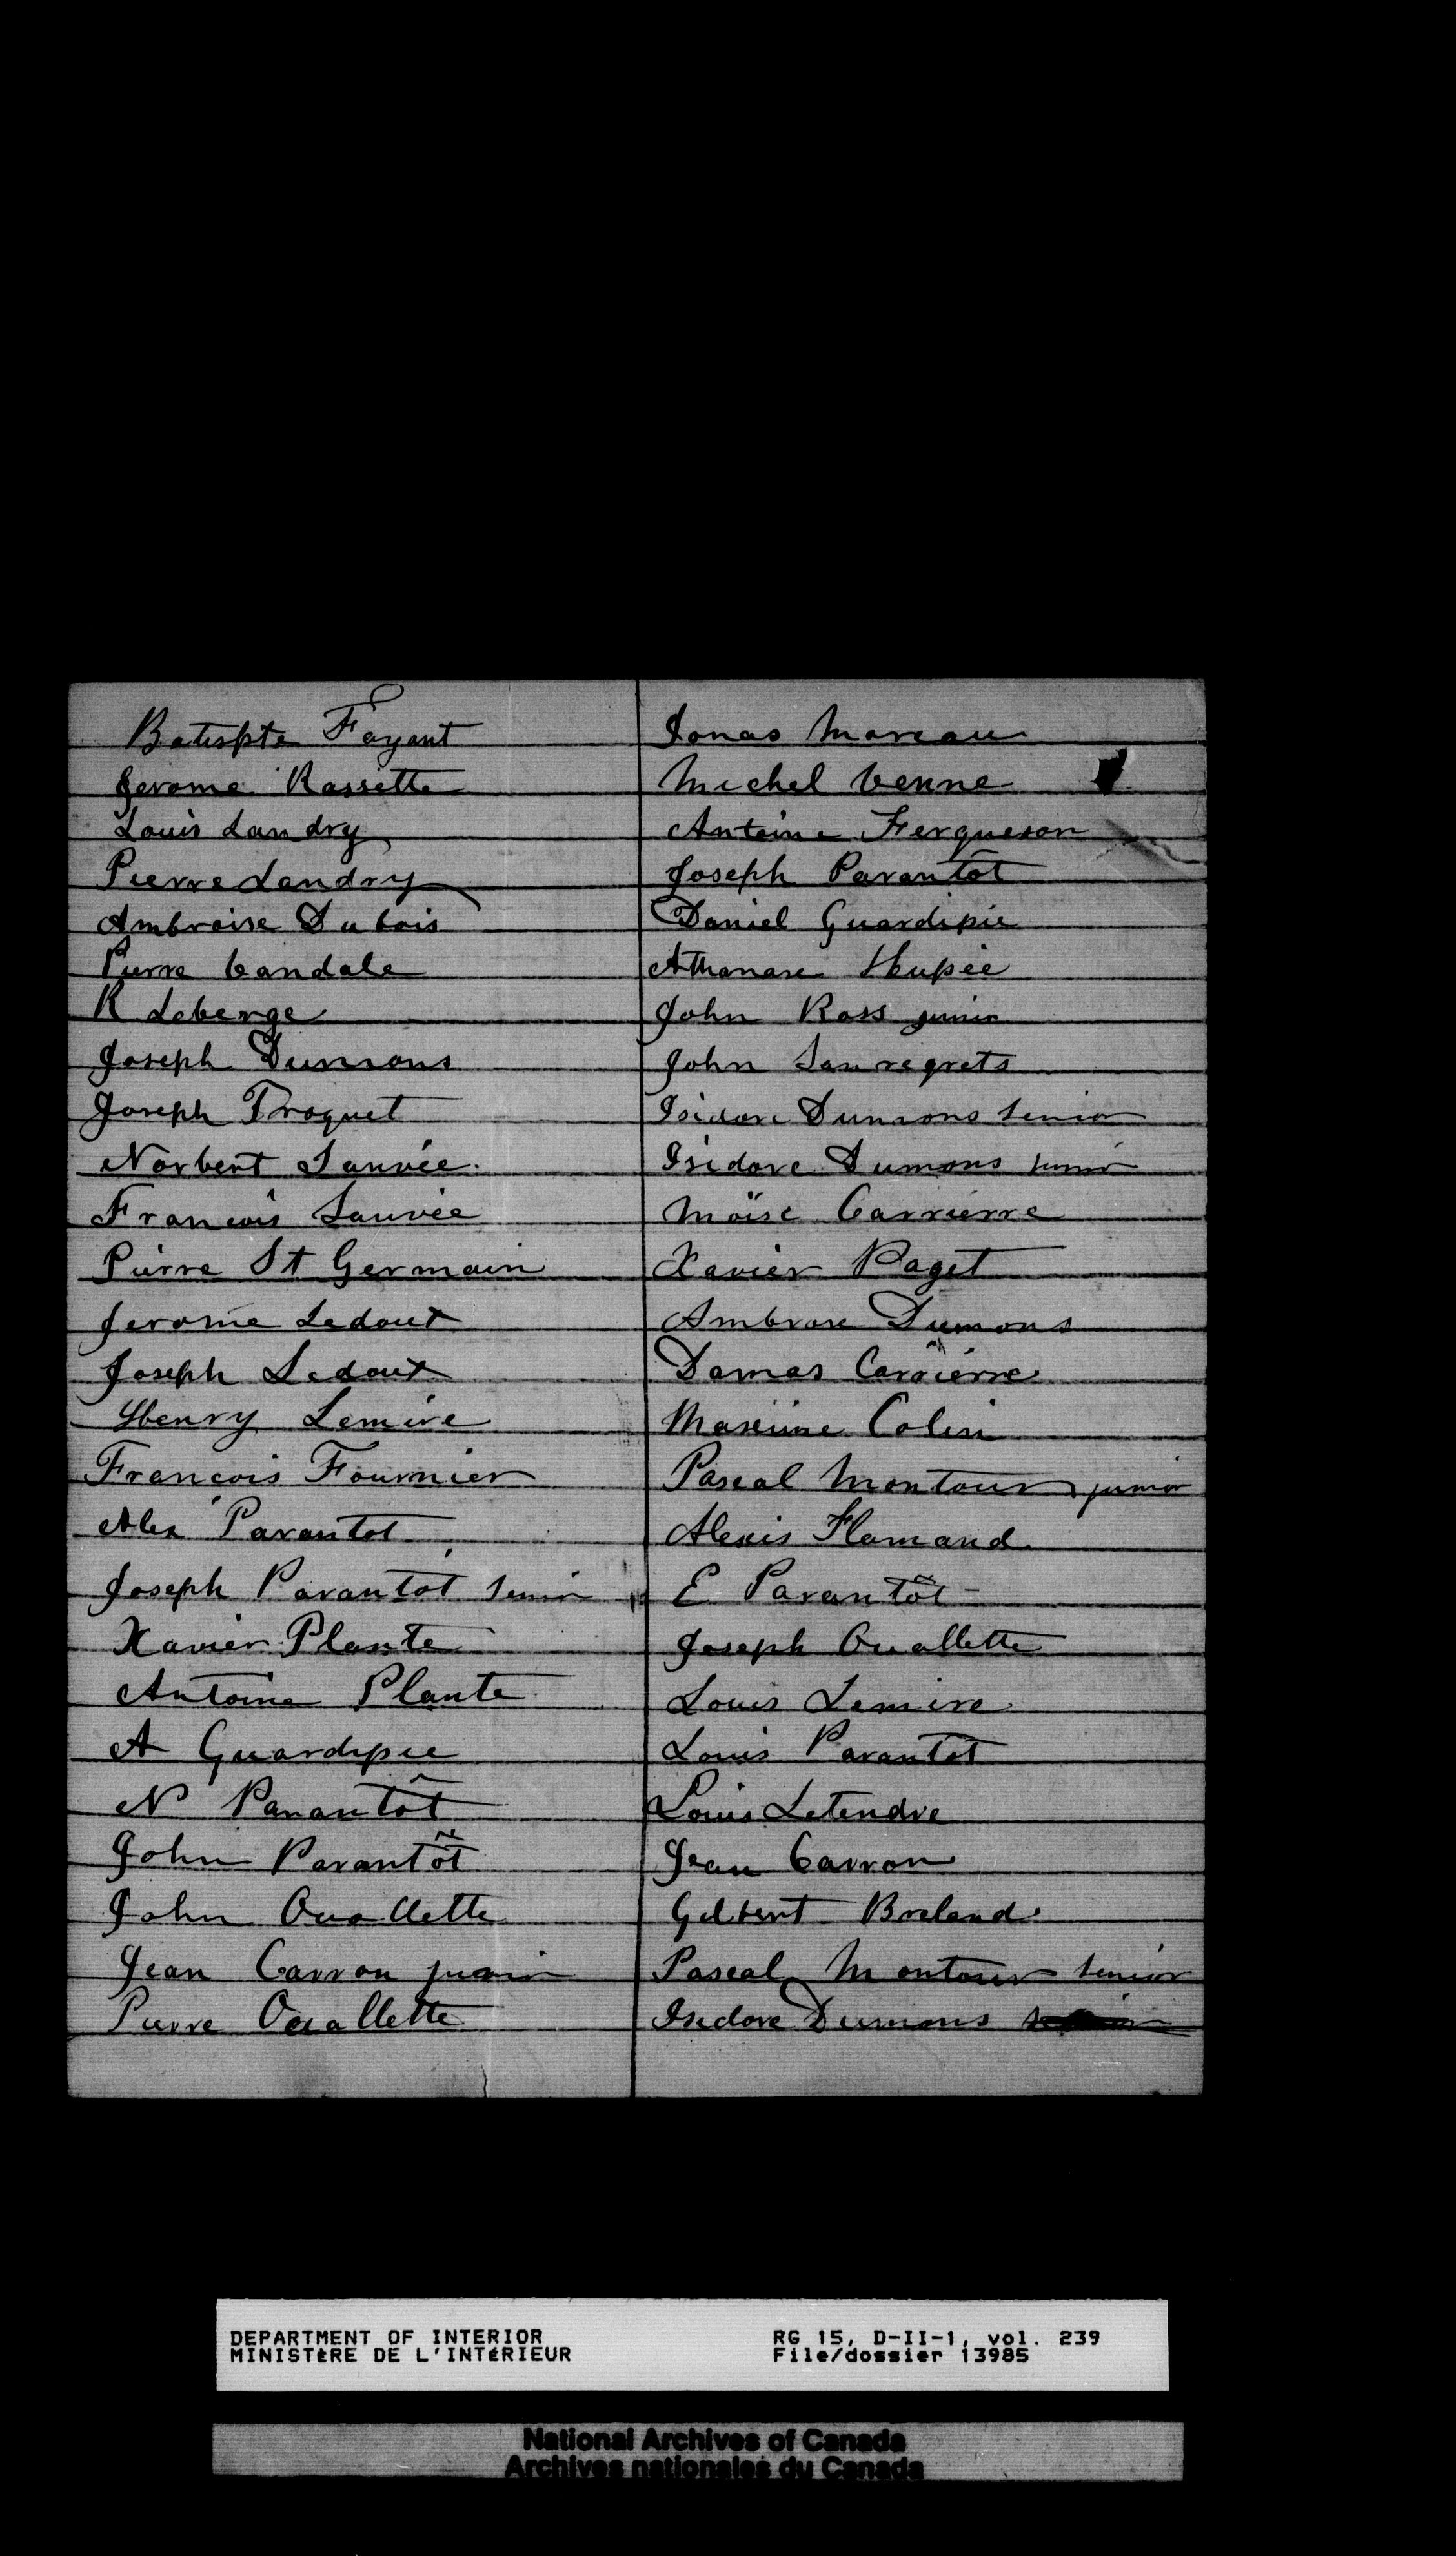 Batispte Fayant
Jerome Rassette
Louis Landry
Pierre Landry
Ambroise Dubois
Pierre Candale
R Leberge
Joseph Dumons
Joseph Troquet
Norbert Sauvée
Francois Sauvée
Pierre St Germain
Jerome Ledout
Joseph Ledout
Henry Lemire
François Fournier
Alex Parantot
Joseph Parantot senior
Xavier Plante
Antoine Plante
A Guardipee
N Parantôt
John Parantôt
John Ouallette
Jean Carron junior
Pierre Ouallette
Jonas Moreau
Michel Venne
Antoine Fergueson
Joseph Parantôt
Daniel Guardipie
Athanase Hupée
John Ross junior
John Sanregrets
Isidore Dumons senior
Isidore Dumons junior
Moïse Carrierre
Xavier Paget
Ambrose Dumons
Damas Carrierre
Maxime Colin
Pascal Montour junior
Alexis Flamand
E Parantôt
Joseph Ouallette
Louis Lemire
Louis Parantôt
Louis Letendre
Jean Carron
Gilbert Breland
Pascal Montour senior
Isidore Dumons
DEPARTMENT OF INTERIOR
MINISTÈRE DE L'INTÉRIEUR
RG 15, D-II-1, vol. 239
File/dossier 13985
National Archives of Canada
Archives nationales du Canada